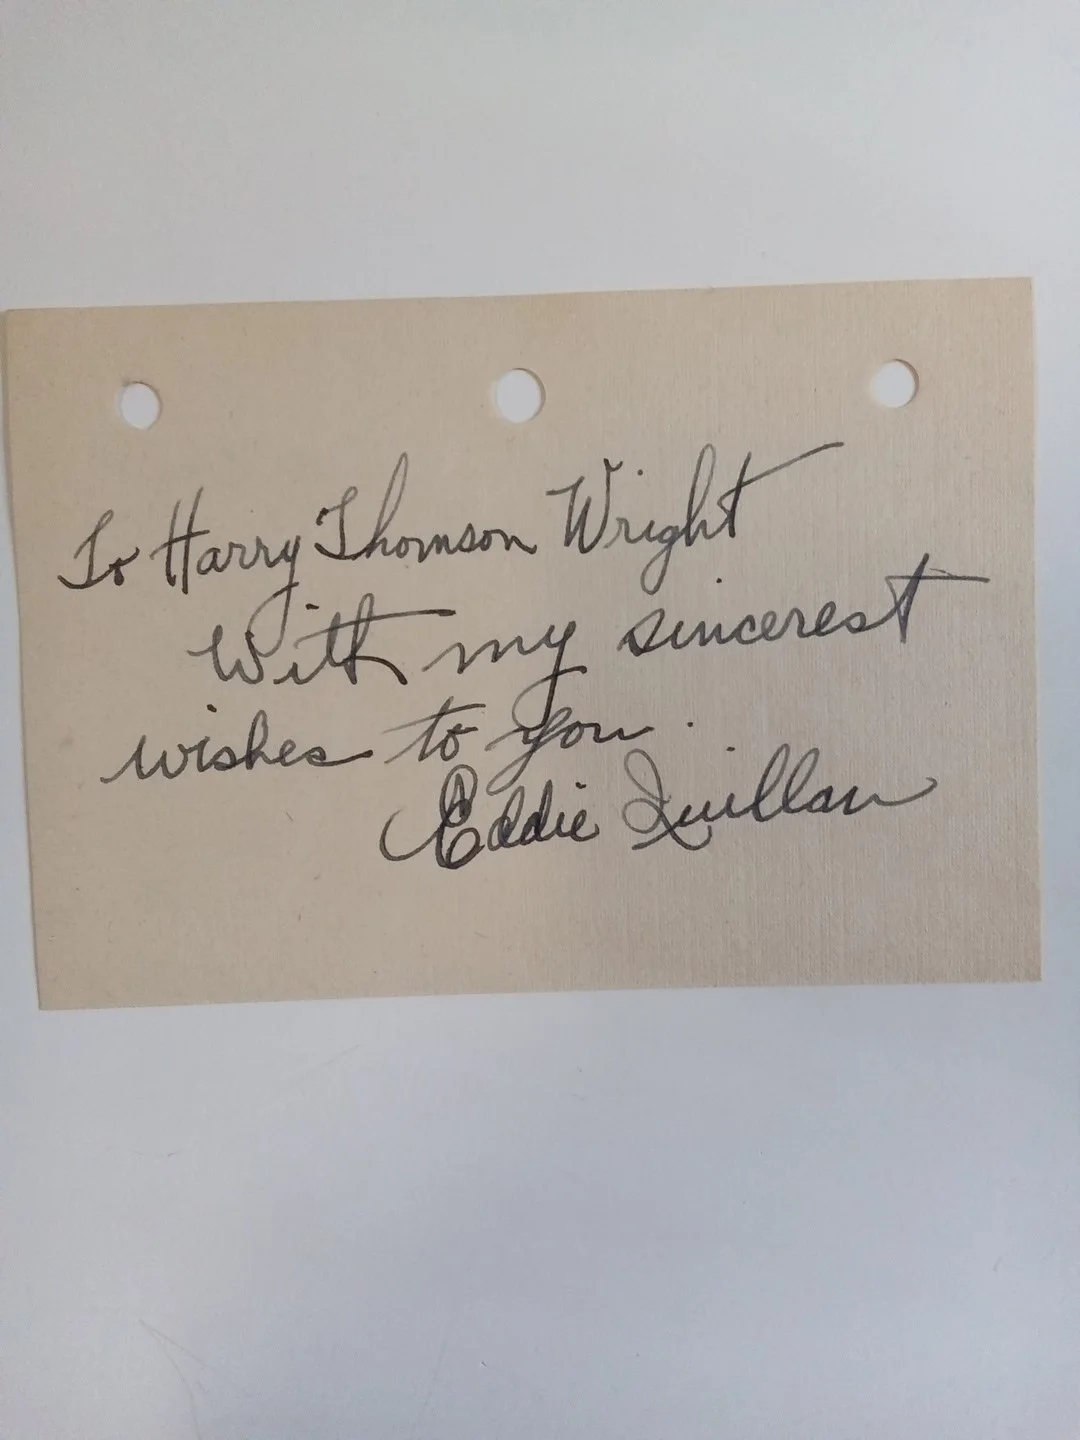 To Harry Thomson Wright
With my sincerest
wishes to you.
Eddie Quillan